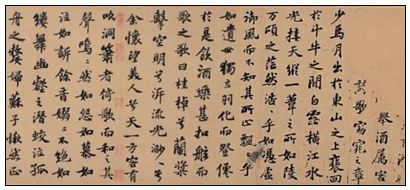 舉酒屬客
詩歌窈窕之章
少焉月出於東山之上裵回
於斗牛之間白露橫江水
光接天縱一葦之所如陵
萬頃之茫然浩浩乎如憑虛
御風而不知其所止飄飄乎
如遺世獨立羽化而登僊
於是飲酒樂甚扣舷而
歌之歌曰桂棹兮蘭槳
擊空明兮泝流光渺渺兮
余懷望美人兮天一方客有
吹洞簫者倚歌而和之其
聲嗚嗚然如怨如慕如
泣如訴餘音嫋嫋不絕如
縷舞幽壑之潛蛟泣孤
舟之嫠婦蘇子愀然正